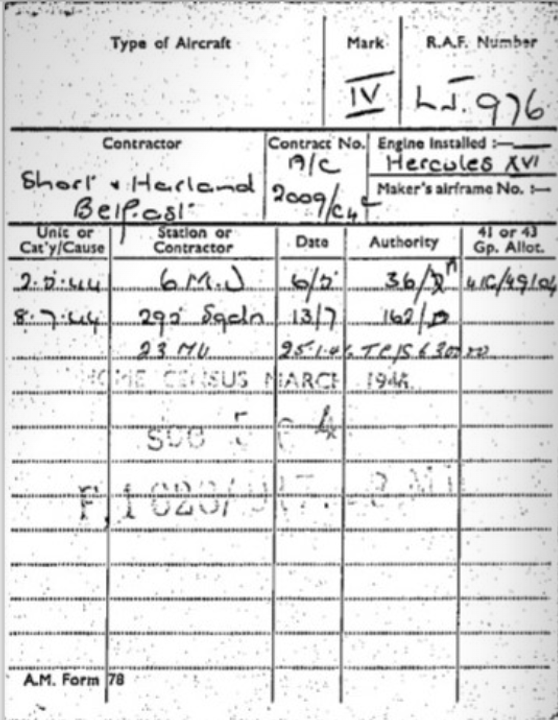 Type of Aircraft Mark R.A.F. Number
IV LJ. 976
Contractor Contract No. Engine Installed :—
A/C Hercules XVI
Short & Harland 2009/C4 Maker's airframe No. :—
Belfast
Unit or Cat'y/Cause Station or Contractor Date Authority 41 or 43 Gp. Allot.
2.5.44 6 M.U 6/5 36/ 41G/49/04
8.7.44 295 Sqdn 13/7 162/
23 MU 25.1.
HOME CENSUS MARCH 1946
SOC 5
A.M. Form 78